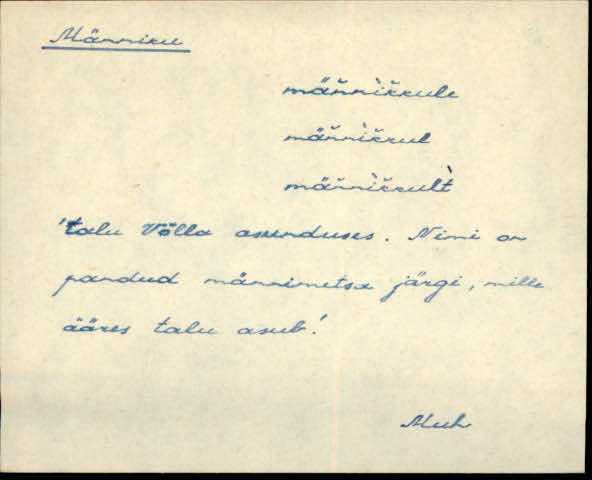 Männiku
männìkkule
männìkkul
männìkkult
'talu Võlla asunduses. Nimi on
pandud männimetsa järgi, mille
ääres talu asub.'
Muh